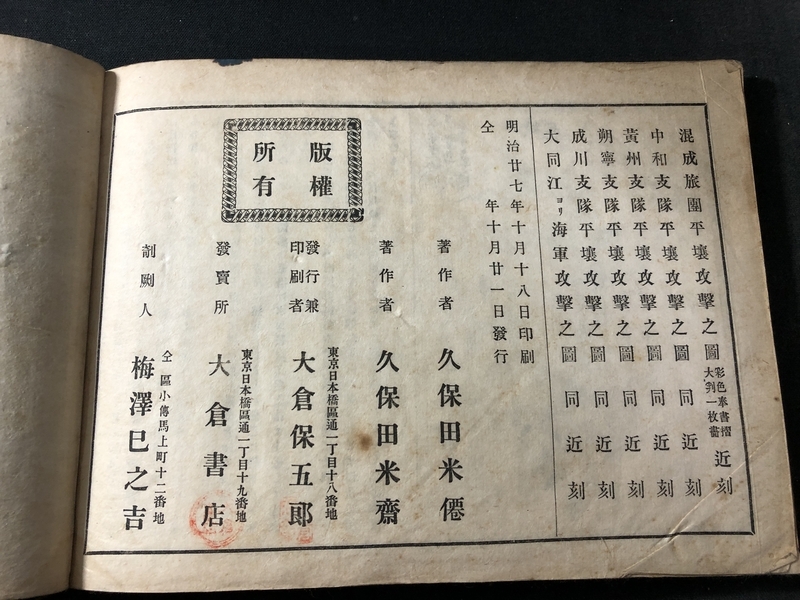 混成旅團平壤攻擊之圖 彩色奉書摺大判一枚畵 近刻
中和支隊平壤攻擊之圖 同 近刻
黃州支隊平壤攻擊之圖 同 近刻
朔寧支隊平壤攻擊之圖 同 近刻
成川支隊平壤攻擊之圖 同 近刻
大同江ヨリ海軍攻擊之圖 同 近刻
明治廿七年十月十八日印刷
仝 年十月廿一日發行
版權所有
著作者 久保田米僊
著作者 久保田米齋
發行兼印刷者
東京日本橋區通一丁目十八番地
大倉保五郎
發賣所
東京日本橋區通一丁目十九番地
大倉書店
剞劂人
仝 區小傳馬上町十二番地
梅澤巳之吉